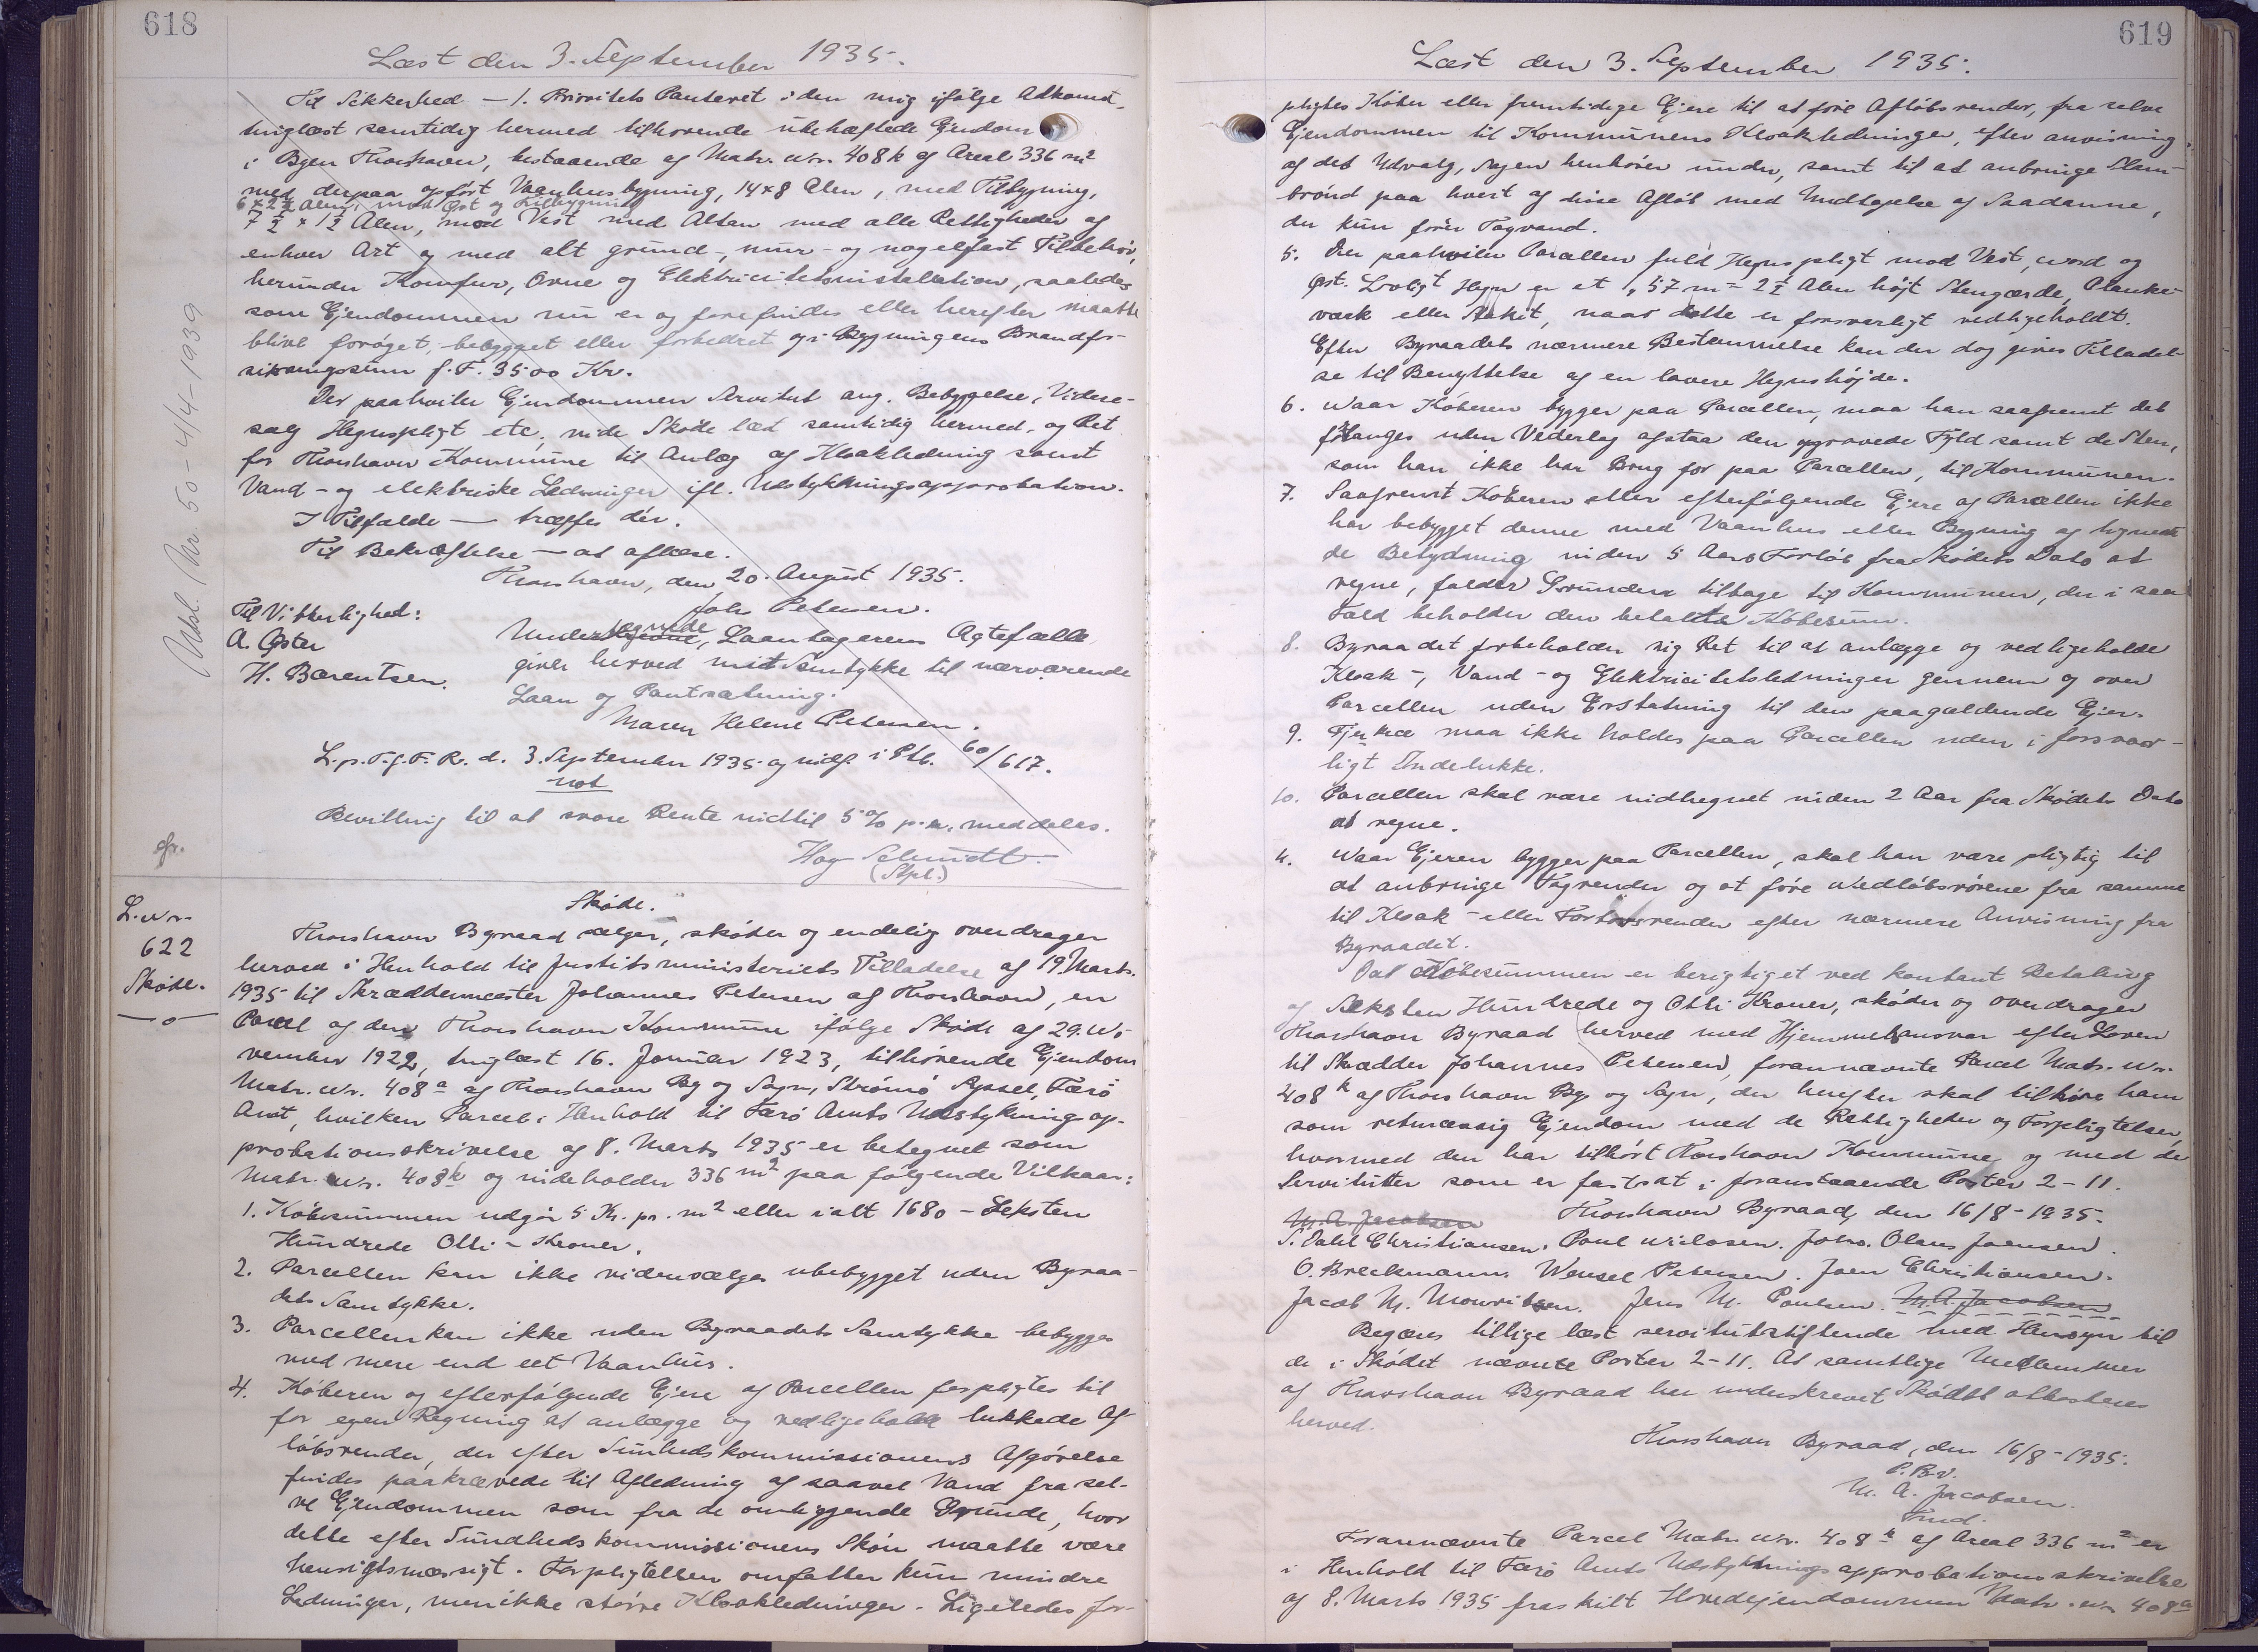 618
Læst den 3. September 1935.
Til Sikkerhed — 1. Prioritets Panteret i den mig ifølge Adkomst,
tinglæst samtidig hermed tilhørende ubehæftede Ejendom
i Byen Thorshavn, bestaaende af Matr. Nr. 408k af Areal 336 m²
med derpaa opført Vaanhusbygning, 14 x 8 Alen, med Tilbygning,
6 x 2½ Alen, mod Øst og Tilbygning
7½ x 1½ Alen, mod Vest med Altan med alle Rettigheder af
enhver Art og med alt grund-, mur- og nagelfast Tilbehør,
herunder Komfur, Ovne og Elektricitetsinstallation, saaledes
som Ejendommen nu er og forefindes eller herefter maatte
blive forøget, bebygget eller forbedret og i Bygningens Brandfor-
sikringssum f. T. 3500 Kr.
Der paahviler Ejendommen Servitut ang. Bebyggelse, Videre-
salg Hegnspligt etc, vide Skøde læst samtidig hermed, og Ret
for Thorshavn Kommune til Anlæg af Kloakledning samt
Vand- og elektriske Ledninger ifl. Udstykningsapprobation.
I Tilfælde — træffes dér.
Til Bekræftelse — at aflæse.
Thorshavn, den 20. August 1935.
Joh. Petersen.
Til Vitterlighed:
A. Øster
H. Barentsen.
Undertegnede, Laantagerens Ægtefælle
giver herved mit Samtykke til nærværende
Laan og Pantsætning.
Maren Helene Petersen.
L. p. T. f. F. R. d. 3. September 1935 og indf i Ptb. 60/617.
not
Bevilling til at svare Rente indtil 5% p. a. meddeles.
Hag Schmidt.
(Stpl.)
Udsl. Nr. 50 - 4/4 - 1939
gr.
L. Nr.
622
Skøde.
Skøde.
Thorshavn Byraad sælger, skøder og endelig overdrager
herved i Henhold til Justitsministeriets Tilladelse af 19. Marts
1935 til Skræddermester Johannes Petersen af Thorshavn, en
Parcel af den Thorshavn Kommune ifølge Skøde af 29. No-
vember 1922, tinglæst 16. Januar 1923, tilhørende Ejendom
Matr. Nr. 408a af Thorshavn By og Sogn, Strømø Syssel, Færø
Amt, hvilken Parcel i Henhold til Færø Amts Udstykningsap-
probationsskrivelse af 8. Marts 1935 er betegnet som
Matr. Nr. 408k og indeholder 336 m² paa følgende Vilkaar:
1. Købesummen udgør 5 Kr. pr. m² eller ialt 1680 - Seksten
Hundrede Otti - Kroner.
2. Parcellen kan ikke videresælges ubebygget uden Byraa-
dets Samtykke.
3. Parcellen kan ikke uden Byraadets Samtykke bebygges
med mere end eet Vaanhus.
4. Køberen og efterfølgende Ejere af Parcellen forpligtes til
for egen Regning at anlægge og vedligeholde lukkede Af-
løbsrender, der efter Sundhedskommissionens Afgørelse
findes paakrævede til Afledning af saavel Vand fra sel-
ve Ejendommen som fra de omliggende Grunde, hvor
dette efter Sundhedskommissionens Skøn maatte være
hensigtsmæssigt. Forpligtelsen omfatter kun mindre
Ledninger, men ikke større Kloakledninger. Ligeledes for-
619
Læst den 3. September 1935.
pligtes Køber eller fremtidige Ejere til at føre Afløbsrender, fra selve
Ejendommen til Kommunens Kloakledninger, efter anvisning
af det Udvalg, Sagen henhører under, samt til at anbringe Slam-
brønd paa hvert af disse Afløb med Undtagelse af Saadanne,
der kun fører Tagvand.
5. Der paahviler Parcellen fuld Hegnspligt mod Vest, Nord og
Øst. Lovligt Hegn er et 1,57 m = 2½ Alen højt Stengærde, Planke-
værk eller Stakit, naar dette er forsvarligt vedligeholdt.
Efter Byraadets nærmere Bestemmelse kan der dog gives Tilladel-
se til Benyttelse af en lavere Hegnshøjde.
6. Naar Køberen bygger paa Parcellen, maa han saafremt det
forlanges uden Vederlag afstaa den opgravede Fyld samt de Sten,
som han ikke har Brug for paa Parcellen, til Kommunen.
7. Saafremt Køberen eller efterfølgende Ejere af Parcellen ikke
har bebygget denne med Vaanhus eller Bygning af lignen-
de Betydning inden 5 Aars Forløb fra Skødets Dato at
regne, falder Grunden tilbage til Kommunen, der i saa
Fald beholder den betalte Købesum.
8. Byraadet forbeholder sig Ret til at anlægge og vedligeholde
Kloak-, Vand- og Elektricitetsledninger gennem og over
Parcellen uden Erstatning til den paagældende Ejer.
9. Fjerkræ maa ikke holdes paa Parcellen uden i forsvar-
ligt Indelukke.
10. Parcellen skal være indhegnet inden 2 Aar fra Skødets Dato
at regne.
11. Naar Ejeren bygger paa Parcellen, skal han være pligtig til
at anbringe Tagrender og at føre Nedløbsrørene fra samme
til Kloak- eller Fortovsrender efter nærmere Anvisning fra
Byraadet.
Da Købesummen er berigtiget ved kontant Betaling
af Seksten Hundrede og Otti Kroner, skøder og overdrager
Thorshavn Byraad herved med Hjemmelsansvar efter Loven
til Skrædder Johannes Petersen, forannævnte Parcel Matr. Nr.
408k af Thorshavn By og Sogn, der herefter skal tilhøre ham
som retmæssig Ejendom med de Rettigheder og Forpligtelser,
hvormed den har tilhørt Thorshavn Kommune og med de
Servitutter som er fastsat i foranstaaende Poster 2-11.
M. A. Jacobsen Thorshavn Byraad, den 16/8 - 1935.
S. Dahl Christiansen. Poul Niclasen. Johs. Olaus Joensen.
O. Breckmann. Wensel Petersen. Joen Christiansen.
Jacob M. Mouritsen. Jens M. Poulsen. M. A. Jacobsen
Begæres tillige læst servitutstiftende med Hensyn til
de i Skødet nævnte Poster 2-11. At samtlige Medlemmer
af Thorshavn Byraad har underskrevet Skødet attesteres
herved.
Thorshavn Byraad, den 16/8 - 1935.
P. B. V.
M. A. Jacobsen.
Fmd.
Forannævnte Parcel Matr. Nr. 408k af Areal 336 m² er
i Henhold til Færø Amts Udstykningsapprobationsskrivelse
af 8. Marts 1935 fraskilt Hovedejendommen Matr. Nr. 408a